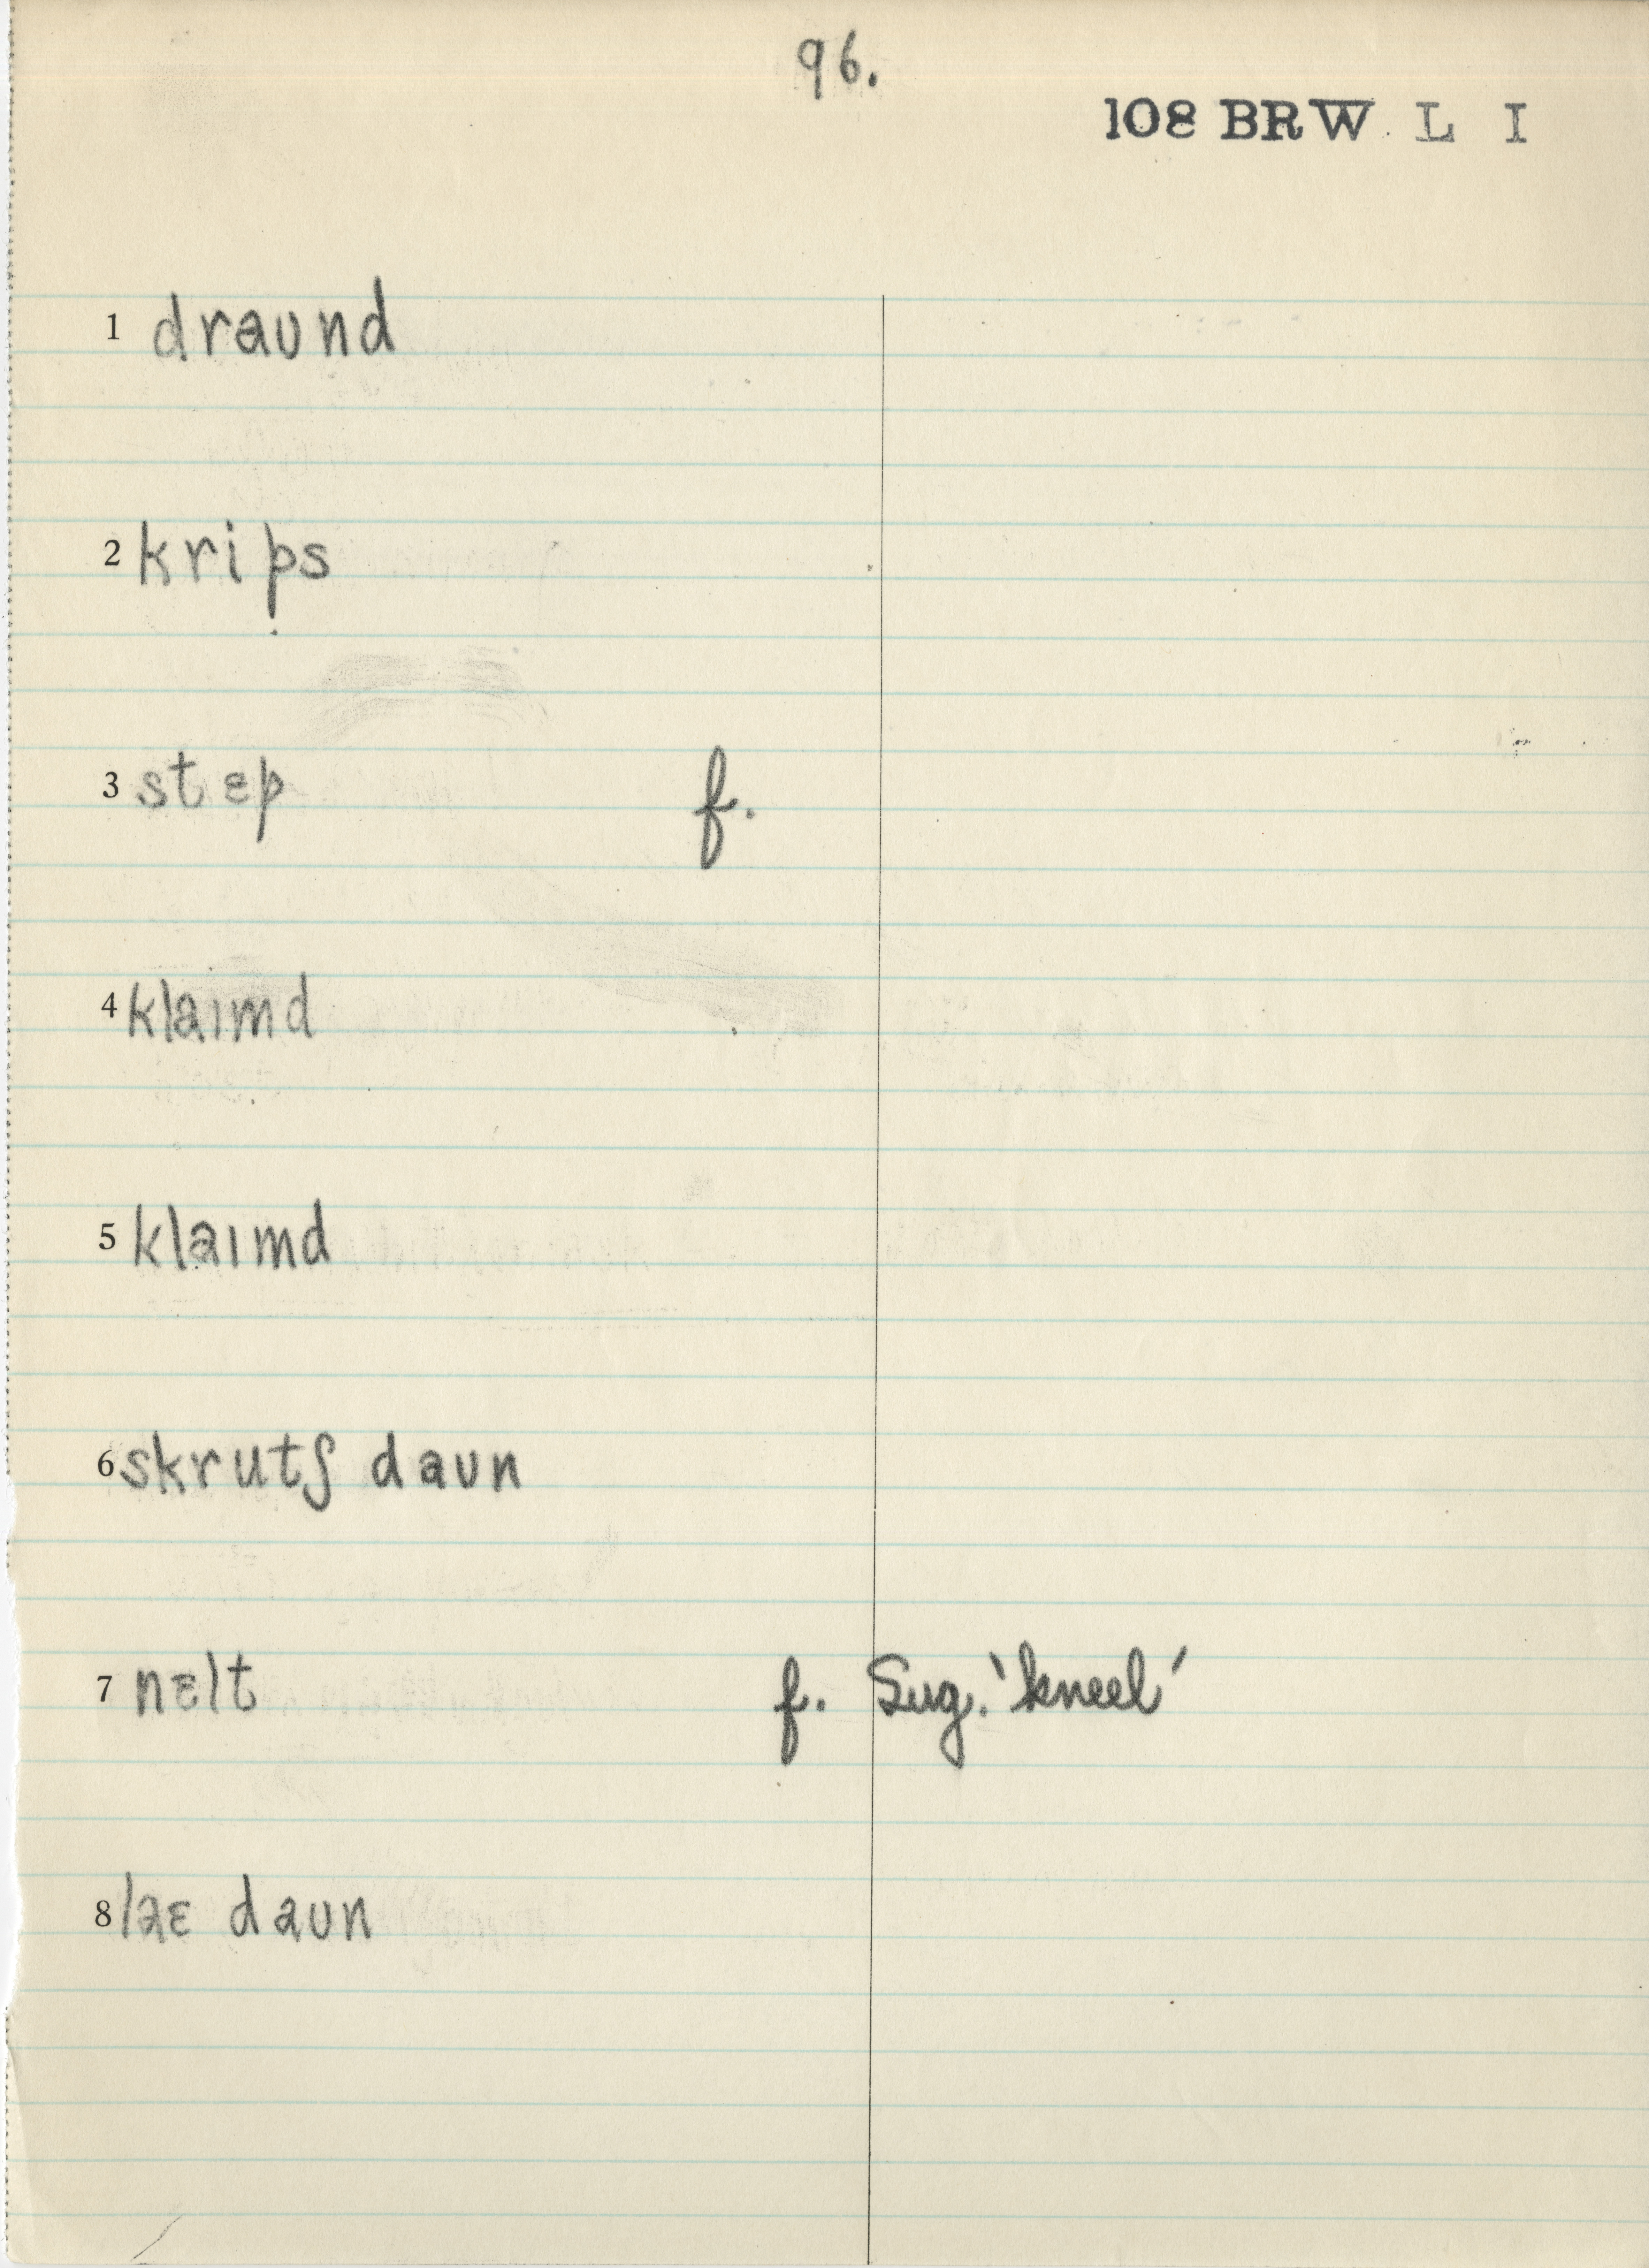 96.
108 BRW L I
1 draʊnd
2 krips
3 stɛp f.
4 klaɪmd
5 klaɪmd
6 skrutʃ daʊn
7 nɛlt f. Sug. 'kneel'
8 laɛ daʊn